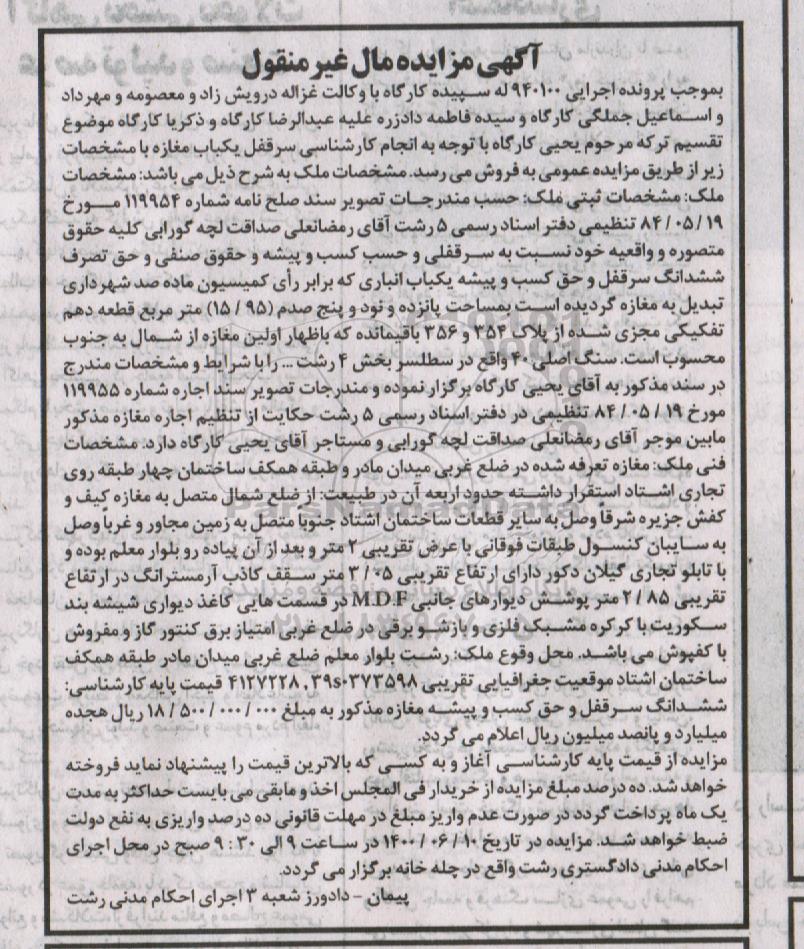 آگهی مزایده مال غیر منقول
بموجب پرونده اجرایی ۹۴۰۱۰۰ له سپیده کارگاه با وکالت غزاله درویش زاد و معصومه و مهرداد
و اسماعیل جملگی کارگاه و سیده فاطمه دادزره علیه عبدالرضا کارگاه و ذکریا کارگاه موضوع
تقسیم ترکه مرحوم یحیی کارگاه با توجه به انجام کارشناسی سرقفل یکباب مغازه با مشخصات
زیر از طریق مزایده عمومی به فروش می رسد. مشخصات ملک به شرح ذیل می باشد: مشخصات
ملک: مشخصات ثبتی ملک: حسب مندرجات تصویر سند صلح نامه شماره ۱۱۹۹۵۴ مورخ
۸۴/۰۵/۱۹ تنظیمی دفتر اسناد رسمی ۵ رشت آقای رمضانعلی صداقت لچه گورابی کلیه حقوق
متصوره و واقعیه خود نسبت به سرقفلی و حسب کسب و پیشه و حقوق صنفی و حق تصرف
ششدانگ سرقفل و حق کسب و پیشه یکباب انباری که برابر رأی کمیسیون ماده صد شهرداری
تبدیل به مغازه گردیده است بمساحت پانزده و نود و پنج صدم (۱۵/۹۵) متر مربع قطعه دهم
تفکیکی مجزی شده از پلاک ۳۵۴ و ۳۵۶ باقیمانده که باظهار اولین مغازه از شمال به جنوب
محسوب است. سنگ اصلی ۴۰ واقع در سطلسر بخش ۴ رشت ... را با شرایط و مشخصات مندرج
در سند مذکور به آقای یحیی کارگاه برگزار نموده و مندرجات تصویر سند اجاره شماره ۱۱۹۹۵۵
مورخ ۸۴/۰۵/۱۹ تنظیمی در دفتر اسناد رسمی ۵ رشت حکایت از تنظیم اجاره مغازه مذکور
مابین موجر آقای رمضانعلی صداقت لچه گورابی و مستاجر آقای یحیی کارگاه دارد. مشخصات
فنی ملک: مغازه تعرفه شده در ضلع غربی میدان مادر و طبقه همکف ساختمان چهار طبقه روی
تجاری اشتاد استقرار داشته حدود اربعه آن در طبیعت: از ضلع شمال متصل به مغازه کیف و
کفش جزیره شرقاً وصل به سایر قطعات ساختمان اشتاد جنوباً متصل به زمین مجاور و غرباً وصل
به سایبان کنسول طبقات فوقانی با عرض تقریبی ۲ متر و بعد از آن پیاده رو بلوار معلم بوده و
با تابلو تجاری گیلان دکور دارای ارتفاع تقریبی ۳/۰۵ متر سقف کاذب آرمسترانگ در ارتفاع
تقریبی ۲/۸۵ متر پوشش دیوارهای جانبی M.D.F در قسمت هایی کاغذ دیواری شیشه بند
سکوریت با کرکره مشبک فلزی و بازشو برقی در ضلع غربی امتیاز برق کنتور گاز و مفروش
با کفپوش می باشد. محل وقوع ملک: رشت بلوار معلم ضلع غربی میدان مادر طبقه همکف
ساختمان اشتاد موقعیت جغرافیایی تقریبی ۴۱۲۷۲۲۸ ,۳۹s۰۳۷۳۵۹۸ قیمت پایه کارشناسی:
ششدانگ سرقفل و حق کسب و پیشه مغازه مذکور به مبلغ ۱۸/۵۰۰/۰۰۰/۰۰۰ ریال هجده
میلیارد و پانصد میلیون ریال اعلام می گردد.
مزایده از قیمت پایه کارشناسی آغاز و به کسی که بالاترین قیمت را پیشنهاد نماید فروخته
خواهد شد. ده درصد مبلغ مزایده از خریدار فی المجلس اخذ و مابقی می بایست حداکثر به مدت
یک ماه پرداخت گردد در صورت عدم واریز مبلغ در مهلت قانونی ده درصد واریزی به نفع دولت
ضبط خواهد شد. مزایده در تاریخ ۱۴۰۰/۰۶/۱۰ در ساعت ۹ الی ۹:۳۰ صبح در محل اجرای
احکام مدنی دادگستری رشت واقع در چله خانه برگزار می گردد.
پیمان - دادورز شعبه ۳ اجرای احکام مدنی رشت
ParsNamadData